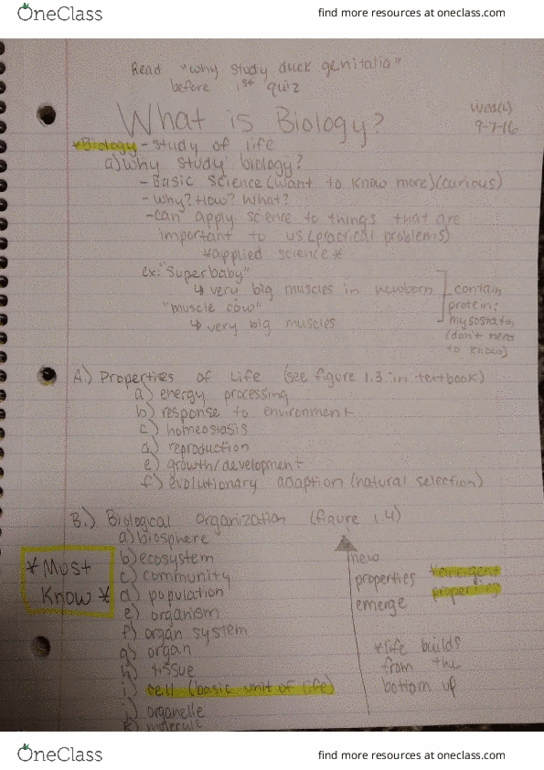 OneClass
find more resources at oneclass.com
Read "why study duck genitalia"
before 1st quiz
What is Biology?
Wed(L)
9-7-16
*Biology - study of life
a) Why study biology?
- Basic science (want to know more) (curious)
- Why? How? What?
- can apply science to things that are
important to us (practical problems)
*applied science*
ex: "Superbaby"
↳ very big muscles in newborn
"muscle cow"
↳ very big muscles
contain
protein:
(don't need
to know)
A.) Properties of Life (see figure 1.3 in textbook)
a) energy processing
b) response to environment
c) homeostasis
d) reproduction
e) growth/development
f) evolutionary adaption (natural selection)
B.) Biological Organization (figure 1.4)
*Must
Know*
a) biosphere
b) ecosystem
c) community
d) population
e) organism
f) organ system
g) organ
h) tissue
i) cell (basic unit of life)
j) organelle
k) molecule
new
properties
emerge
*emergent
properties
*life builds
from the
bottom up
OneClass
find more resources at oneclass.com